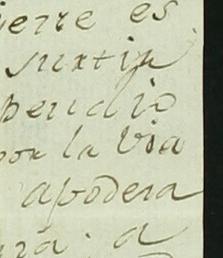 ierre es
surtir
pendio
por la via
apodera
ra. a